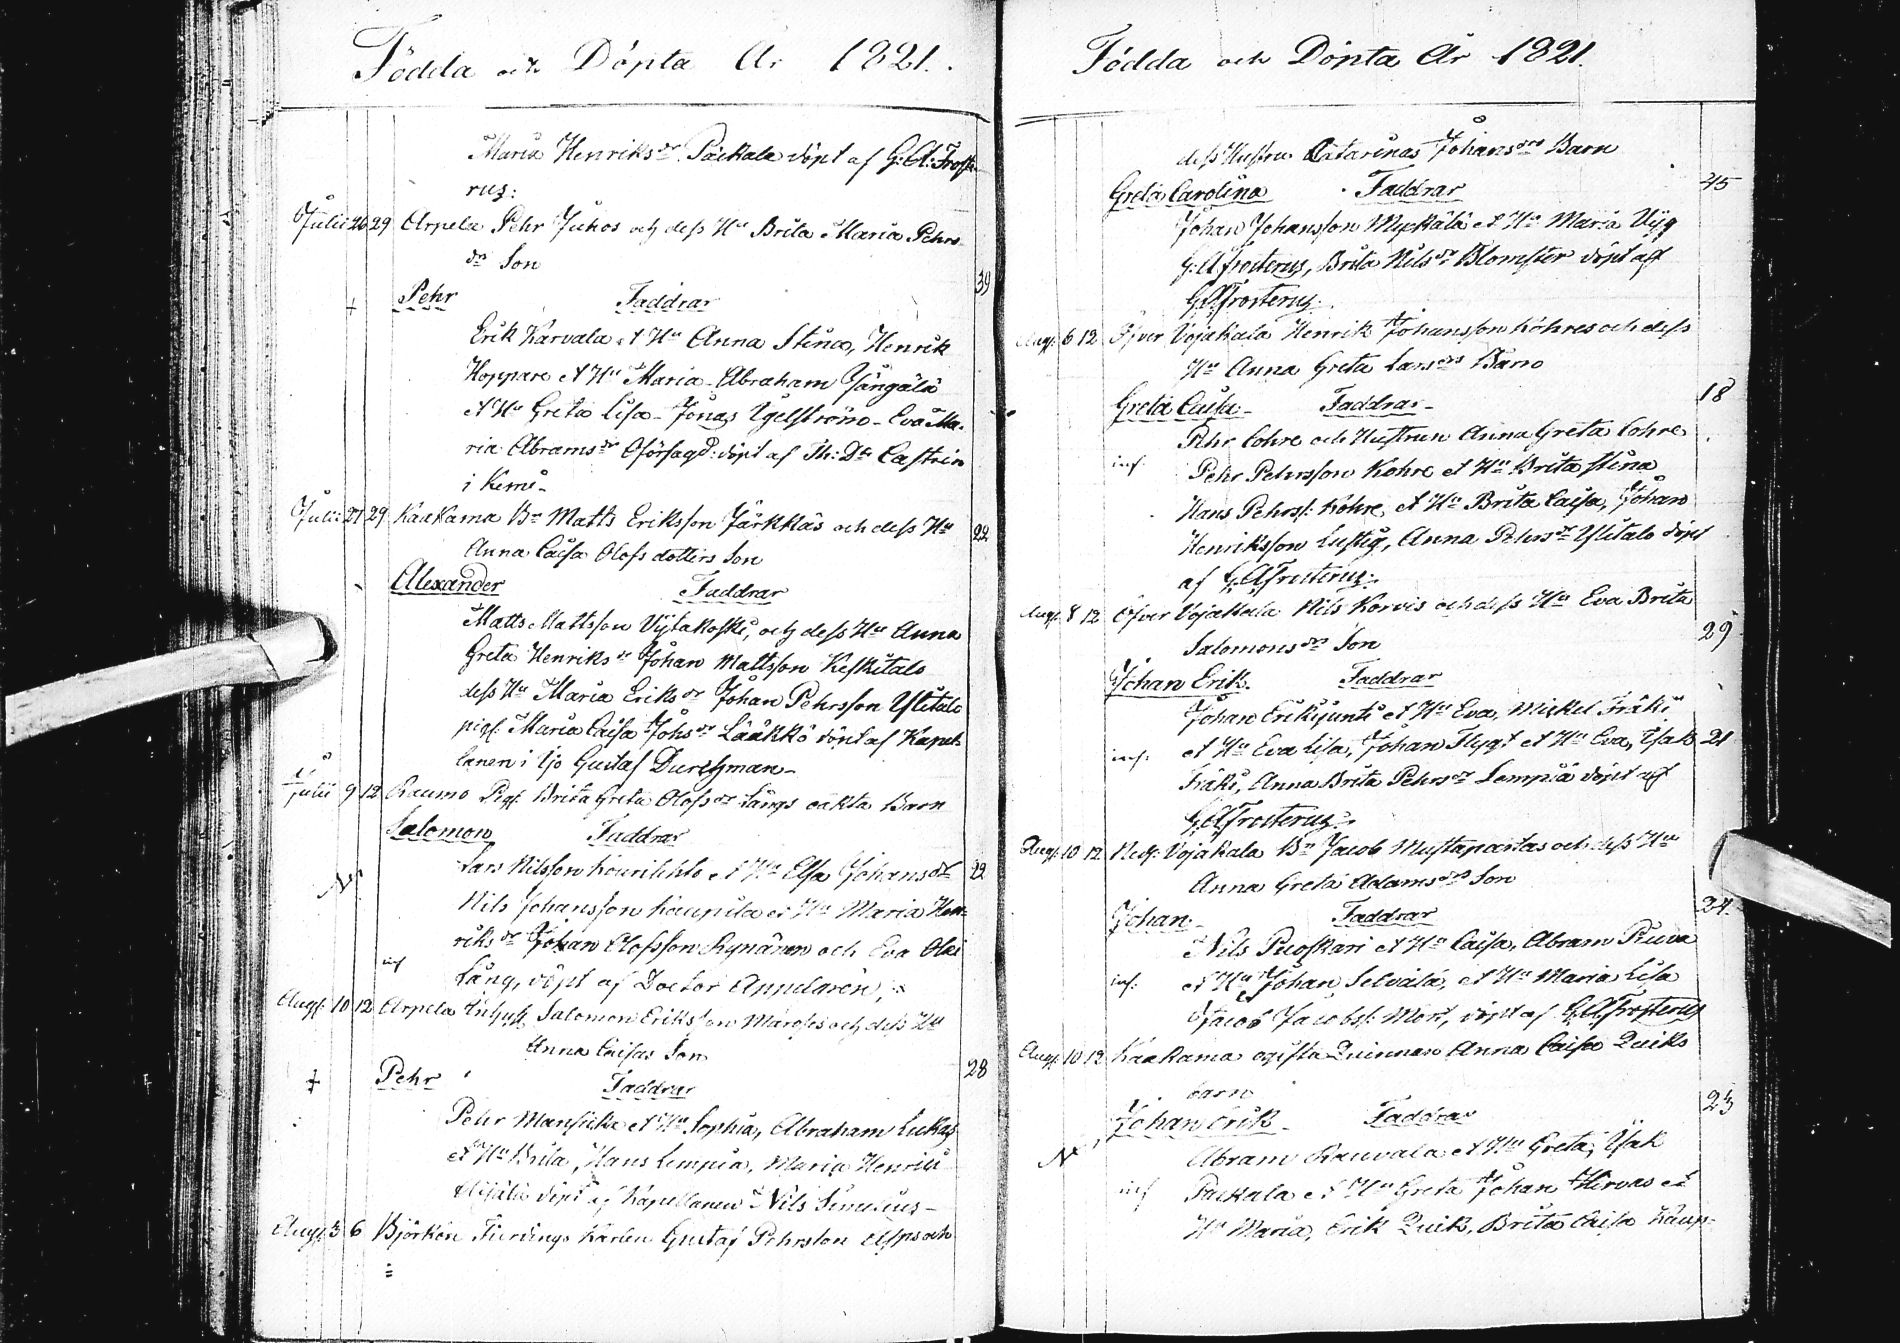 Födda och Döpta År 1821.
Maria Henriksdr Päckala döpt af G: A: Froste-
rus:
Julii 26 29 Arpela Pehr Juhos och dess Hu Brita Maria Pehrs
dr Son
39
Pehr Faddrar
Erik Karvala et Hu Anna Stina, Henrik
Hoppare et Hu Maria - Abraham
et Hu Greta Lisa - Jonas Ugelström - Eva Ma-
ria Abramsdr döpt af Th: Dr Castrén
i Kemi -
Julii 27 29 Kaakama Bn Matts Eriksson Järkkäs och dess Hu 22
Anna Caisa Olofs dotters Son
Alexander Faddrar
Matts Mattsson Vijtakoski, och dess Hu Anna
Greta Henriksdr Johan Mattsson Keskitalo
dess Hu Maria Eriksdr Johan Pehrsson Ylitalo
pig: Maria Caisa Johsdr Lääkkö döpt af Kapel-
lanen i Ijo Gustaf Durchman -
Julii 9 12 Raumo Pig: Brita Greta Olofsdr Långs oäkta Barn
Salomon Faddrar
Lars Nilsson et Hu Elsa Johansdr 22
Nils Johansson Kaupila et Hu Maria Hen-
riksdr Johan Olofsson Rynänen och Eva
inf Lång, döpt af Doctor Appelgren,
Aug: 10 12 Arpela Salomon Eriksson och dess Hu
Anna Caisas Son
28
Pehr Faddrar
Pehr Mansikka et Hu Sophia, Abraham Lukas
et Hu Brita, Hans Lempiä, Maria
döpt af Kapellanen Nils Simelius -
Aug: 3 6 Björkön Fierdings Karlen Gustaf Pehrsson Asps och
Födda och Döpta År 1821.
dess Hustru Catarinas Johansdrs Barn
Greta Carolina Faddrar 45
Johan Johansson Myckälä et Hu Maria Uijg
G: A Frosterus, Brita Nilsdr Blomster döpt af
G: A Frosterus.
Aug: 6 12 Öfver Vojakala Henrik Johansson Kohres och dess
Hu Anna Greta Larsdrs Barn
Greta Caisa - Faddrar - 18
Pehr Cohre och Hustrun Anna Greta Cohre
inf: Pehr Pehrsson Kohre et Hu Brita Stina
Hans Pehrss: Kohre et Hu Brita Caisa, Johan
Henriksson Lustig, Anna Pehrsdr Ylitalo döpt
af G: A Frosterus.
Aug: 8 12 Öfver Vojakala Nils Korvis och dess Hu Eva Brita
Salomonsdrs Son
29
Johan Erik. Faddrar
Johan Erkijuntti et Hu Eva, Mickel Fräki
inf: et Hu Eva Lisa, Johan Flygt et Hu Eva, Isak 21
Fräki, Anna Brita Pehrsdr Lempiä döpt af
G: A Frosterus.
Aug: 10 12 Ned: Vojakala Bn Jacob Mustaparstas och dess Hu
Anna Greta Adamsdrs Son
24.
Johan. Faddrar
Nils Puoskari et Hu Caisa, Abram Ruova
inf: et Hu Johan Selvälä, et Hu Maria Lisa
Jacob Jacobss: Mort, döpt af G: A Frosterus
Aug: 10 12 Kaakama ogifta Quinnan Anna Caisa Quiks
barn
23
Johan Erik - Faddrar
Abram Rauvala et Hu Greta, Isak
inf Päckala et Hu Greta Johan Hirvas et
Hu Maria, Erik Quik, Brita Caisa Kaup-